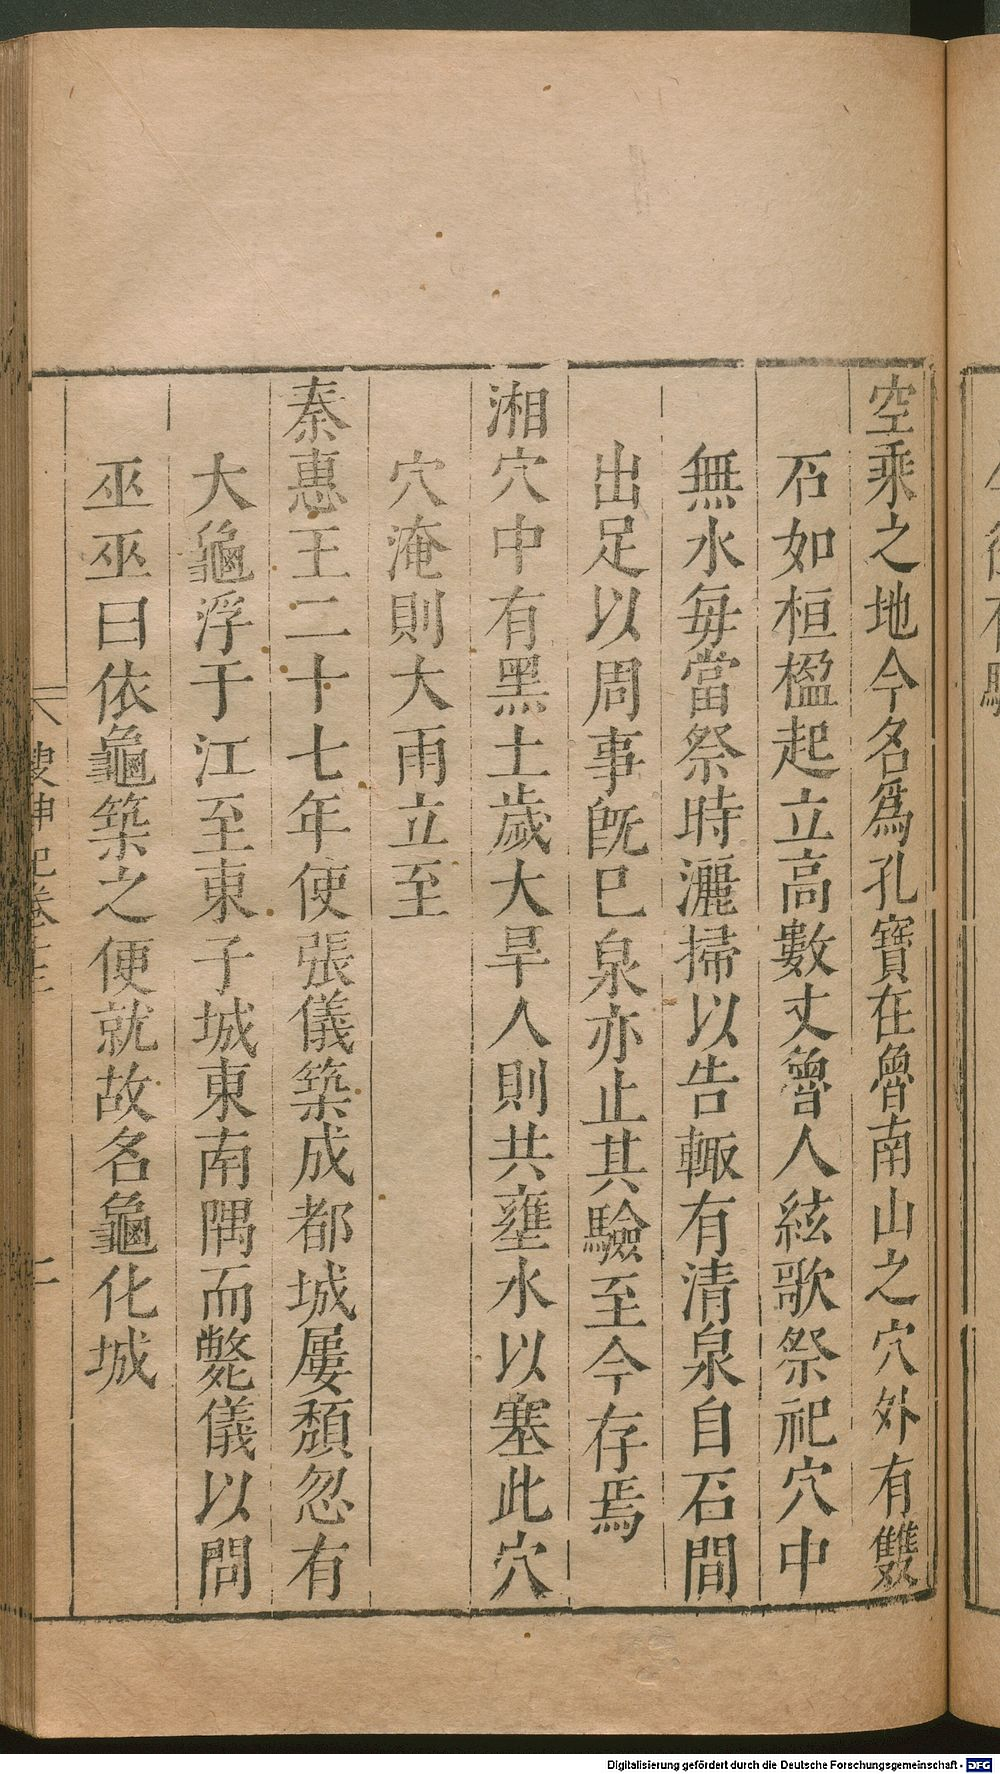 空乘之地今名爲孔寶在魯南山之穴外有雙
石如桓楹起立高數丈魯人絃歌祭祀穴中
無水每當祭時灑掃以告輙有清泉自石間
出足以周事旣已泉亦止其驗至今存焉
湘穴中有黑土歲大旱人則共壅水以塞此穴
穴淹則大雨立至
秦惠王二十七年使張儀築成都城屢頹忽有
大龜浮于江至東子城東南隅而斃儀以問
巫巫曰依龜築之便就故名龜化城
Digitalisierung gefördert durch die Deutsche Forschungsgemeinschaft - DFG